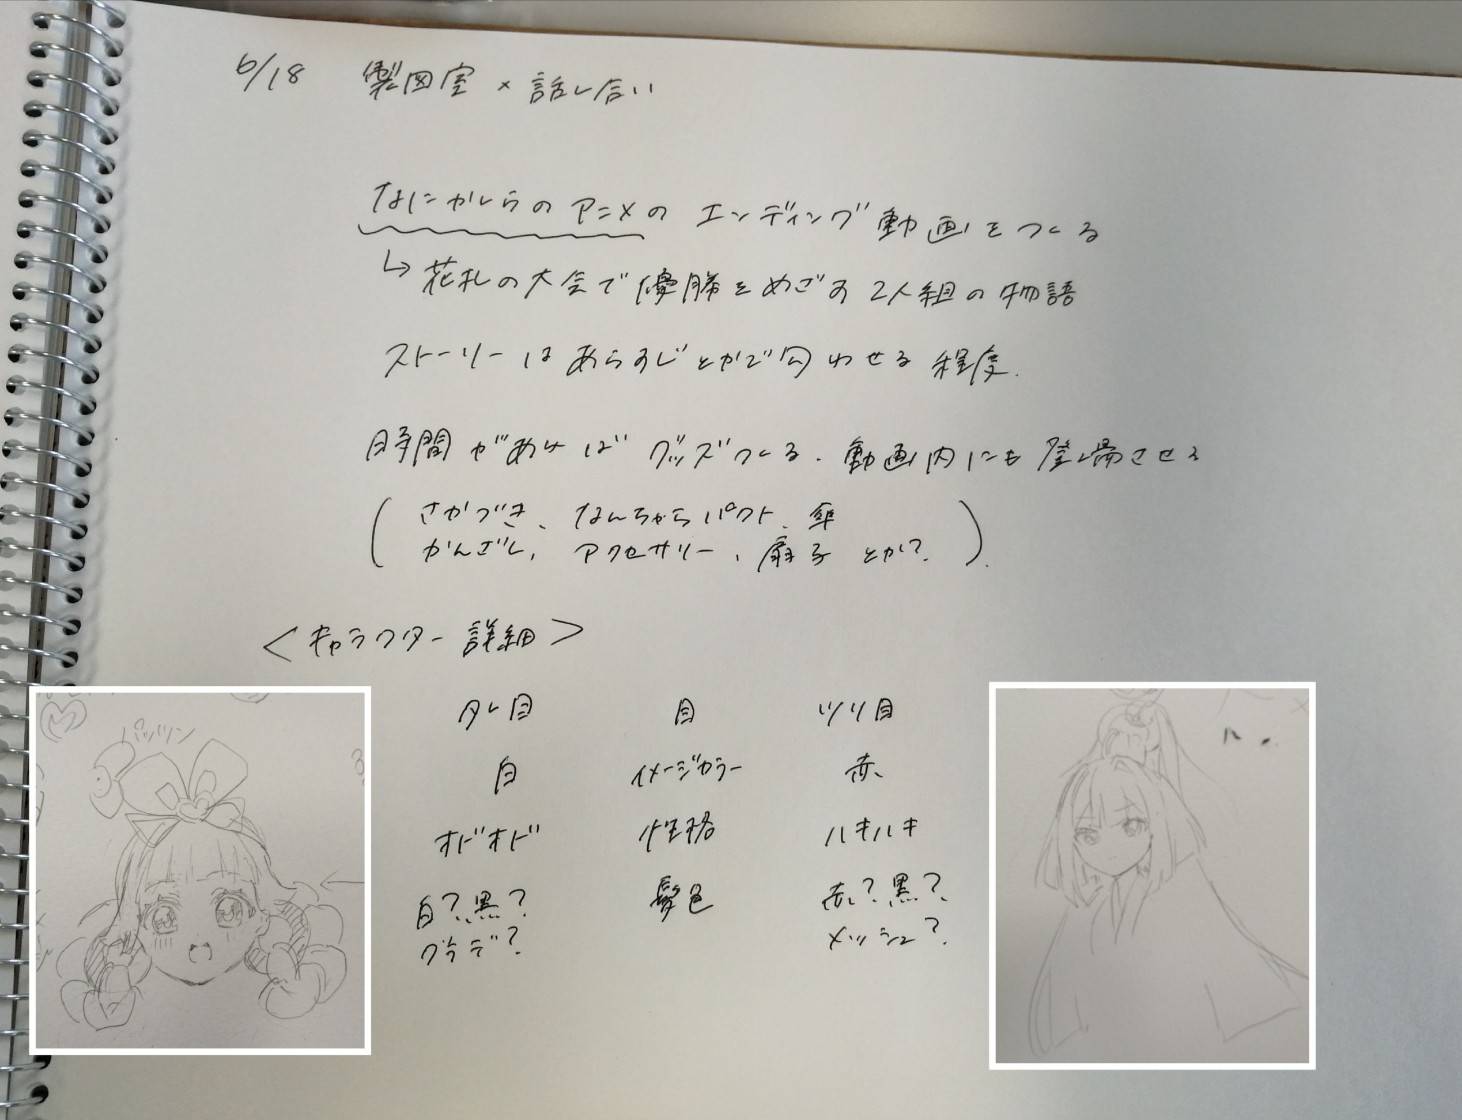 6/18 製図室×話し合い
なにかしらのアニメのエンディング動画をつくる
↳花札の大会で優勝をめざす2人組の物語
ストーリーはあらすじとかで匂わせる程度.
時間があけばグッズつくる.動画内にも登場させる
(さかづき、なんちゃらパクト、傘
かんざし、アクセサリー、扇子とか?).
<キャラクター詳細>
タレ目 目 ツリ目
白 イメージカラー 赤
オドオド 性格 ハキハキ
白?黒? 髪色 赤?黒?
グラデ? メッシュ?
パッツン